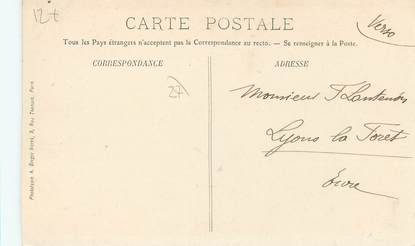 12+
Verso
CARTE POSTALE
Tous les Pays étrangers n'acceptent pas la Correspondance au recto. — Se renseigner à la Poste.
CORRESPONDANCE
ADRESSE
27
Monsieur
Lyons la Forêt
Eure
Phototypie A.
Paris